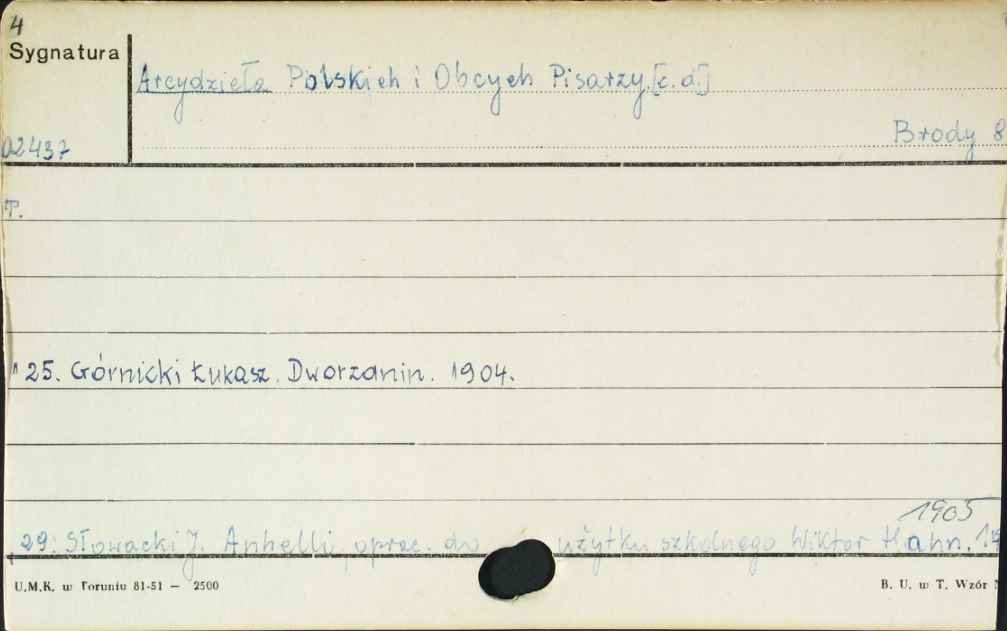 4
Sygnatura
Arcydzieła Polskich i Obcych Pisarzy [c.d.]
02437
Brody 8
T.
" 25. Górnicki Łukasz. Dworzanin. 1904.
1905
, 29: Słowacki J. Anhelli oprac. do użytku szkolnego Wiktor Hahn.
U.M.K. w Toruniu 81-51 — 2500
B. U. w T. Wzór